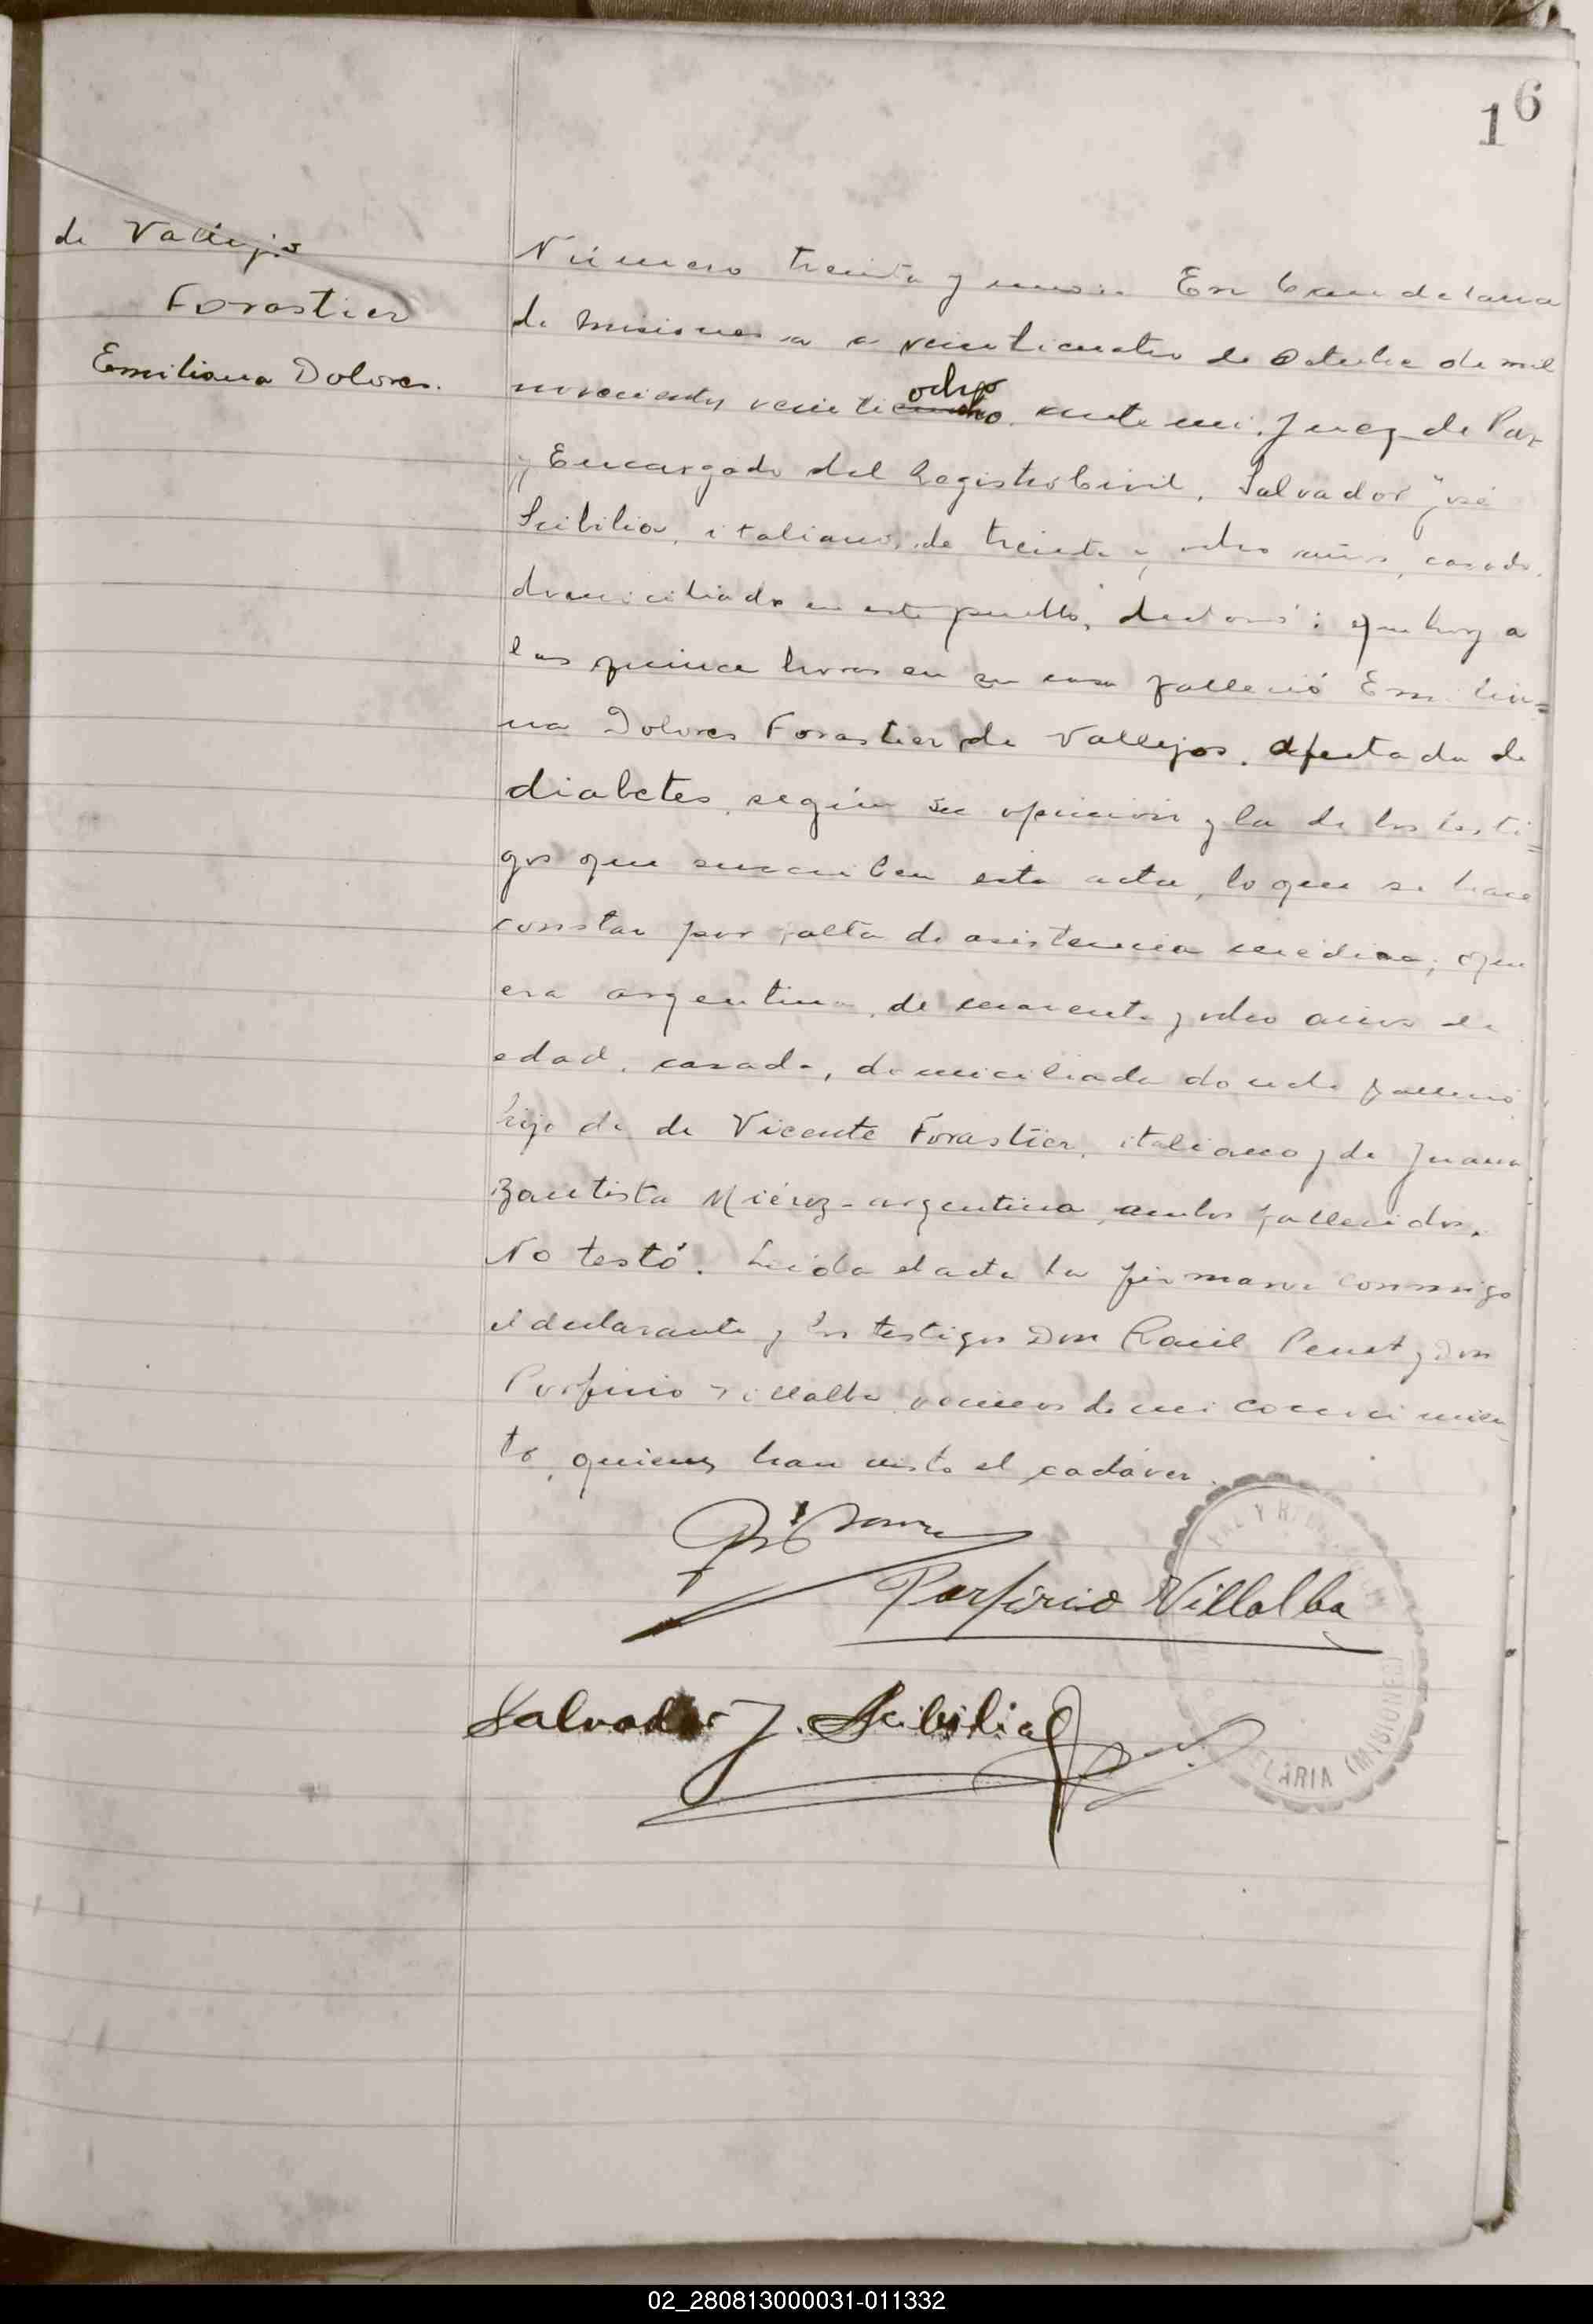 16
de Vallejos
Forastier
Emiliana Dolores.
Número treinta y uno:. En Candelaria
de Misiones a a veinticuatro de Octubre de mil
novecientos veinti ocho ante mi. Juez de Paz
y Encargado del Registro Civil, Salvador José
Scibilia, italiano, de treinta y ocho años, casado,
domiciliado en este pueblo, declaró: que hoy a
las quince horas en su casa falleció Emilia=
na Dolores Forastier de Vallejos. afectada de
diabetes, según su opinión y la de los testi=
gos que suscriben esta acta, lo que se hace
constar por falta de asistencia médica; que
era argentina, de cuarenta y ocho años de
edad, casada, domiciliada donde falleció,
hija de de Vicente Forastier, italiano y de Juana
Bautista Miérez-argentina, ambos fallecidos.
No testó. Leída el acta la firmaron conmigo
el declarante y los testigos Don Raúl Penet y Don
Porfirio Villalba vecinos de mi conocimien
to, quienes han visto el cadáver.
Porfirio Villalba
Salvador J. Scibilia
ELARIA (MISIONES)
02_280813000031-011332